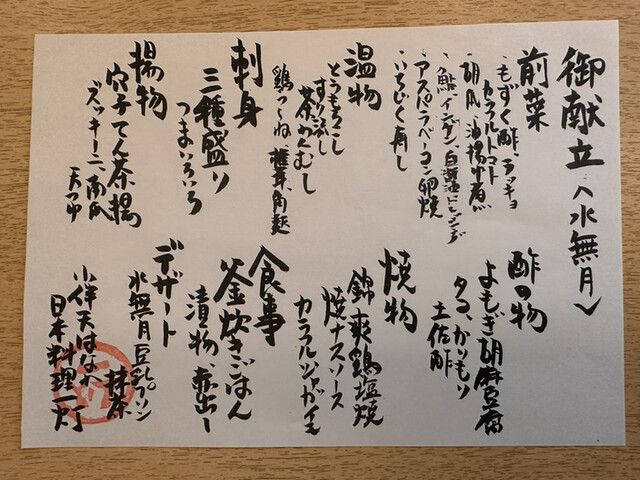 御献立〈水無月〉
前菜
・もずく酢、ラッキョ
カラフルトマト
・胡瓜、油揚甘煮が
・鮎、インゲン、白醤油ドレッシング
・アスパラベーコン卵焼
・いちじく寿し
温物
とうもろこし
すり流し
茶わんむし
鶏つくね 椎茸、角麩
刺身
三種盛り
つまいろいろ
揚物
穴子てん茶揚
ズッキーニ、南瓜
天つゆ
酢の物
よもぎ胡麻豆腐
タコ、かりもり
土佐酢
焼物
錦爽鶏塩焼
焼ナスソース
カラフルジャガイモ
食事
釜炊きごはん
漬物、赤出し
デザート
水無月豆乳プリン
抹茶
小伴天はなれ
日本料理一灯